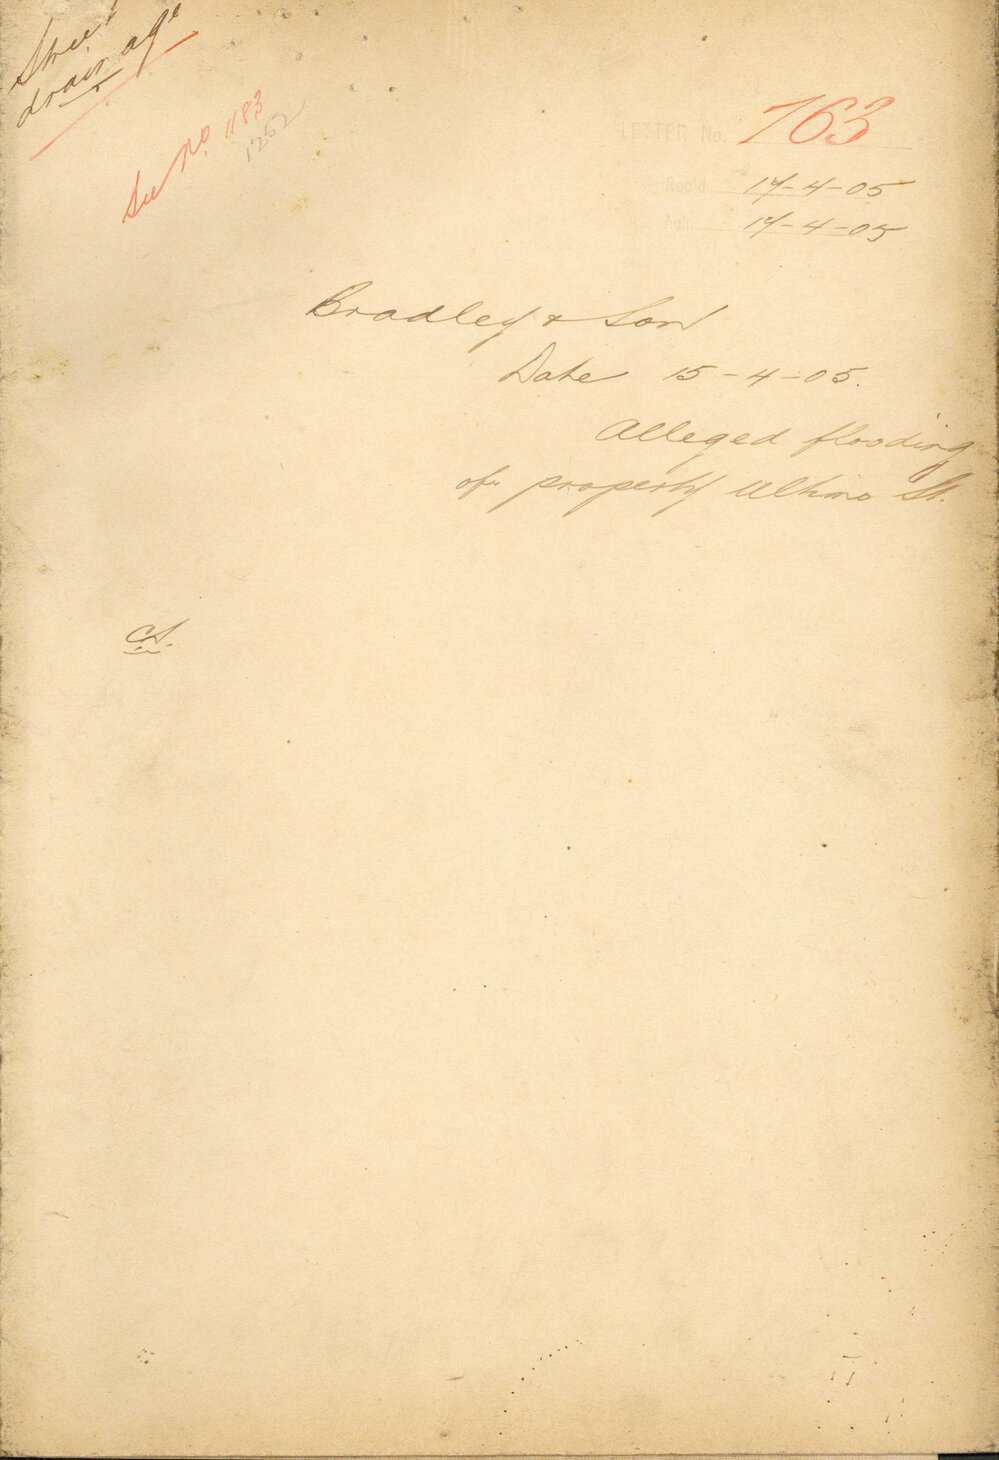 Street
drainage
See No. 1183
1252
LETTER No. 763
Rec'd 17-4-05
Ack. 17-4-05
Bradley & Son
Date 15-4-05.
Alleged flooding
of property Ultimo St.